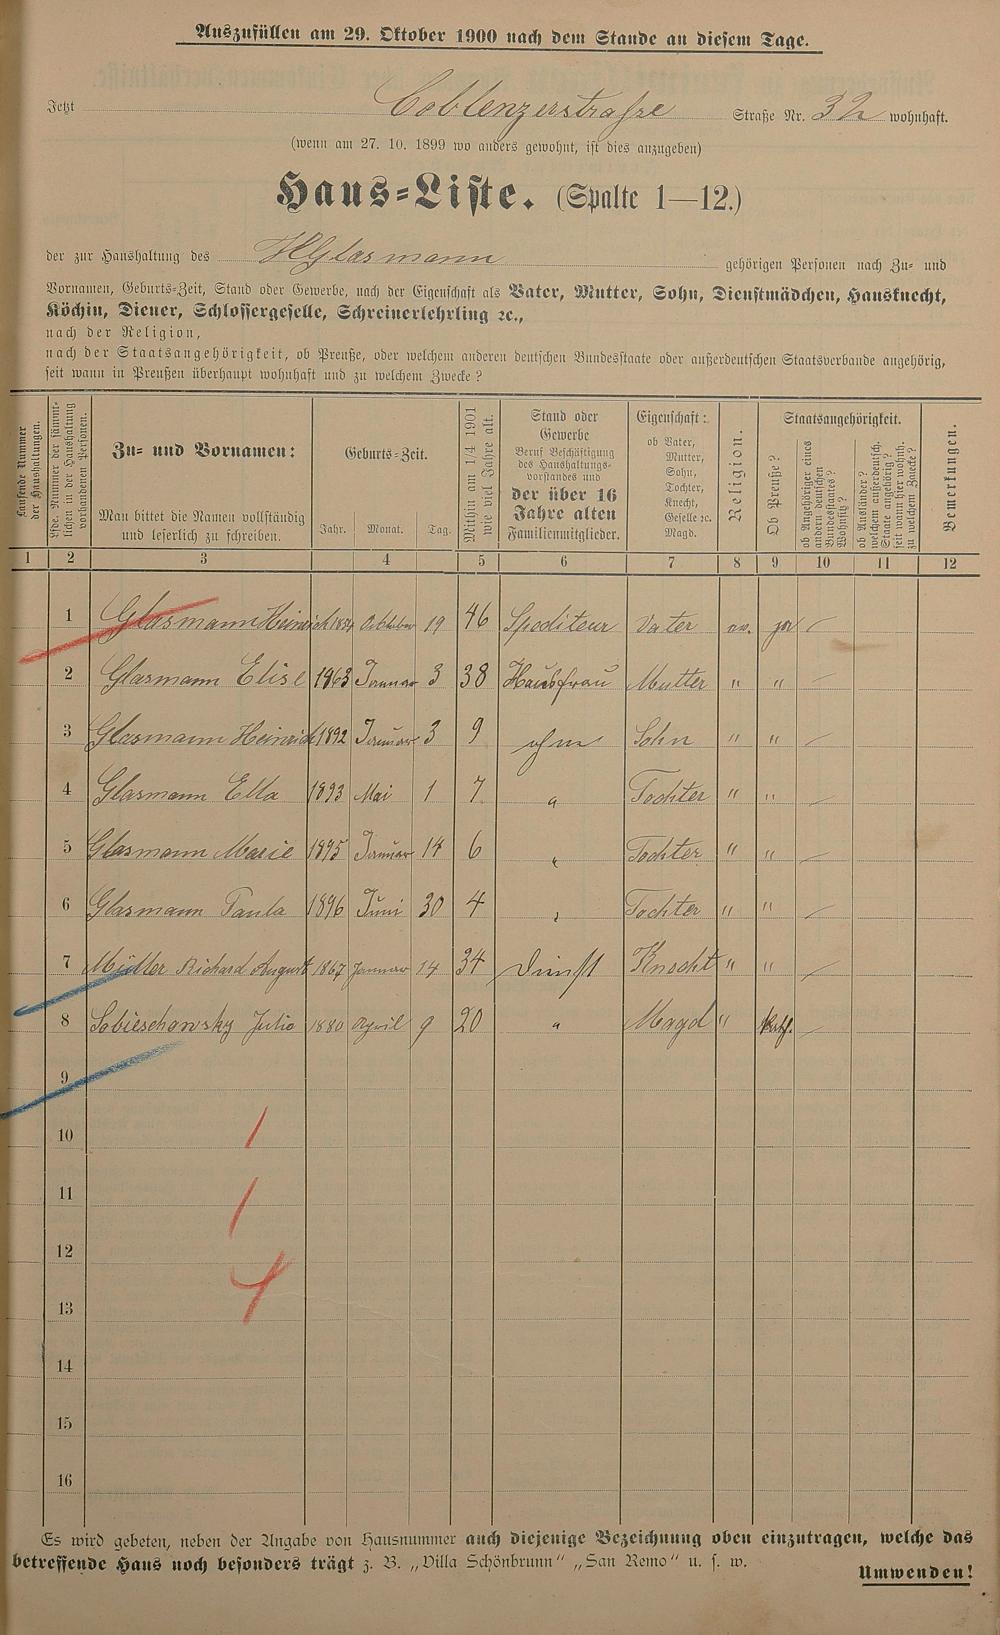 Auszufüllen am 29. Oktober 1900 nach dem Stande an diesem Tage.
Jetzt Coblenzerstraße Straße Nr. 32 wohnhaft.
(wenn am 27. 10. 1899 wo anders gewohnt, ist dies anzugeben)
Haus-Liste. (Spalte 1—12.)
der zur Haushaltung des HGlasmann gehörigen Personen nach Zu- und
Vornamen, Geburts-Zeit, Stand oder Gewerbe, nach der Eigenschaft als Vater, Mutter, Sohn, Dienstmädchen, Hausknecht,
Köchin, Diener, Schlossergeselle, Schreinerlehrling ꝛc.,
nach der Religion,
nach der Staatsangehörigkeit, ob Preuße, oder welchem anderen deutschen Bundesstaate oder außerdeutschen Staatsverbande angehörig,
seit wann in Preußen überhaupt wohnhaft und zu welchem Zwecke?
Laufende Nummer
der Haushaltungen.
Lfde. Nummer der sämmt-
lichen in der Haushaltung
vorhandenen Personen.
Zu- und Vornamen:
Man bittet die Namen vollständig
und leserlich zu schreiben.
Geburts-Zeit.
Jahr. Monat. Tag.
Mithin am 1/4 1901
wie viel Jahre alt.
Stand oder
Gewerbe
Beruf Beschäftigung
des Haushaltungs-
vorstandes und
der über 16
Jahre alten
Familienmitglieder.
Eigenschaft:
ob Vater,
Mutter,
Sohn,
Tochter,
Knecht,
Geselle ꝛc.
Magd.
Religion.
Staatsangehörigkeit.
Ob Preuße?
ob Angehöriger eines
andern deutschen
Bundesstaates?
Wohnsitz?
ob Ausländer?
welchem außerdeutsch.
Staate angehörig?
seit wann hier wohnh.
zu welchem Zwecke?
Bemerkungen.
1 2 3 4 5 6 7 8 9 10 11 12
1 Glasmann Heinrich 1854 October 19 46 Spediteur Vater ev. ja —
2 Glasmann Elise 1863 Januar 3 38 Hausfrau Mutter " " —
3 Glasmann Heinrich 1892 Januar 3 9 ohne Sohn " " —
4 Glasmann Ella 1893 Mai 1 7 " Tochter " " —
5 Glasmann Marie 1895 Januar 14 6 " Tochter " " —
6 Glasmann Paula 1896 Juni 30 4 " Tochter " " —
7 Müller Richard August 1867 Januar 14 34 Dienst Knecht " " —
8 Sobieschowsky Julie 1880 April 9 20 " Magd " Kath. —
9
10
11
12
13
14
15
16
1
1
4
Es wird gebeten, neben der Angabe von Hausnummer auch diejenige Bezeichnung oben einzutragen, welche das
betreffende Haus noch besonders trägt z. B. „Villa Schönbrunn“ „San Remo“ u. s. w.
Umwenden!